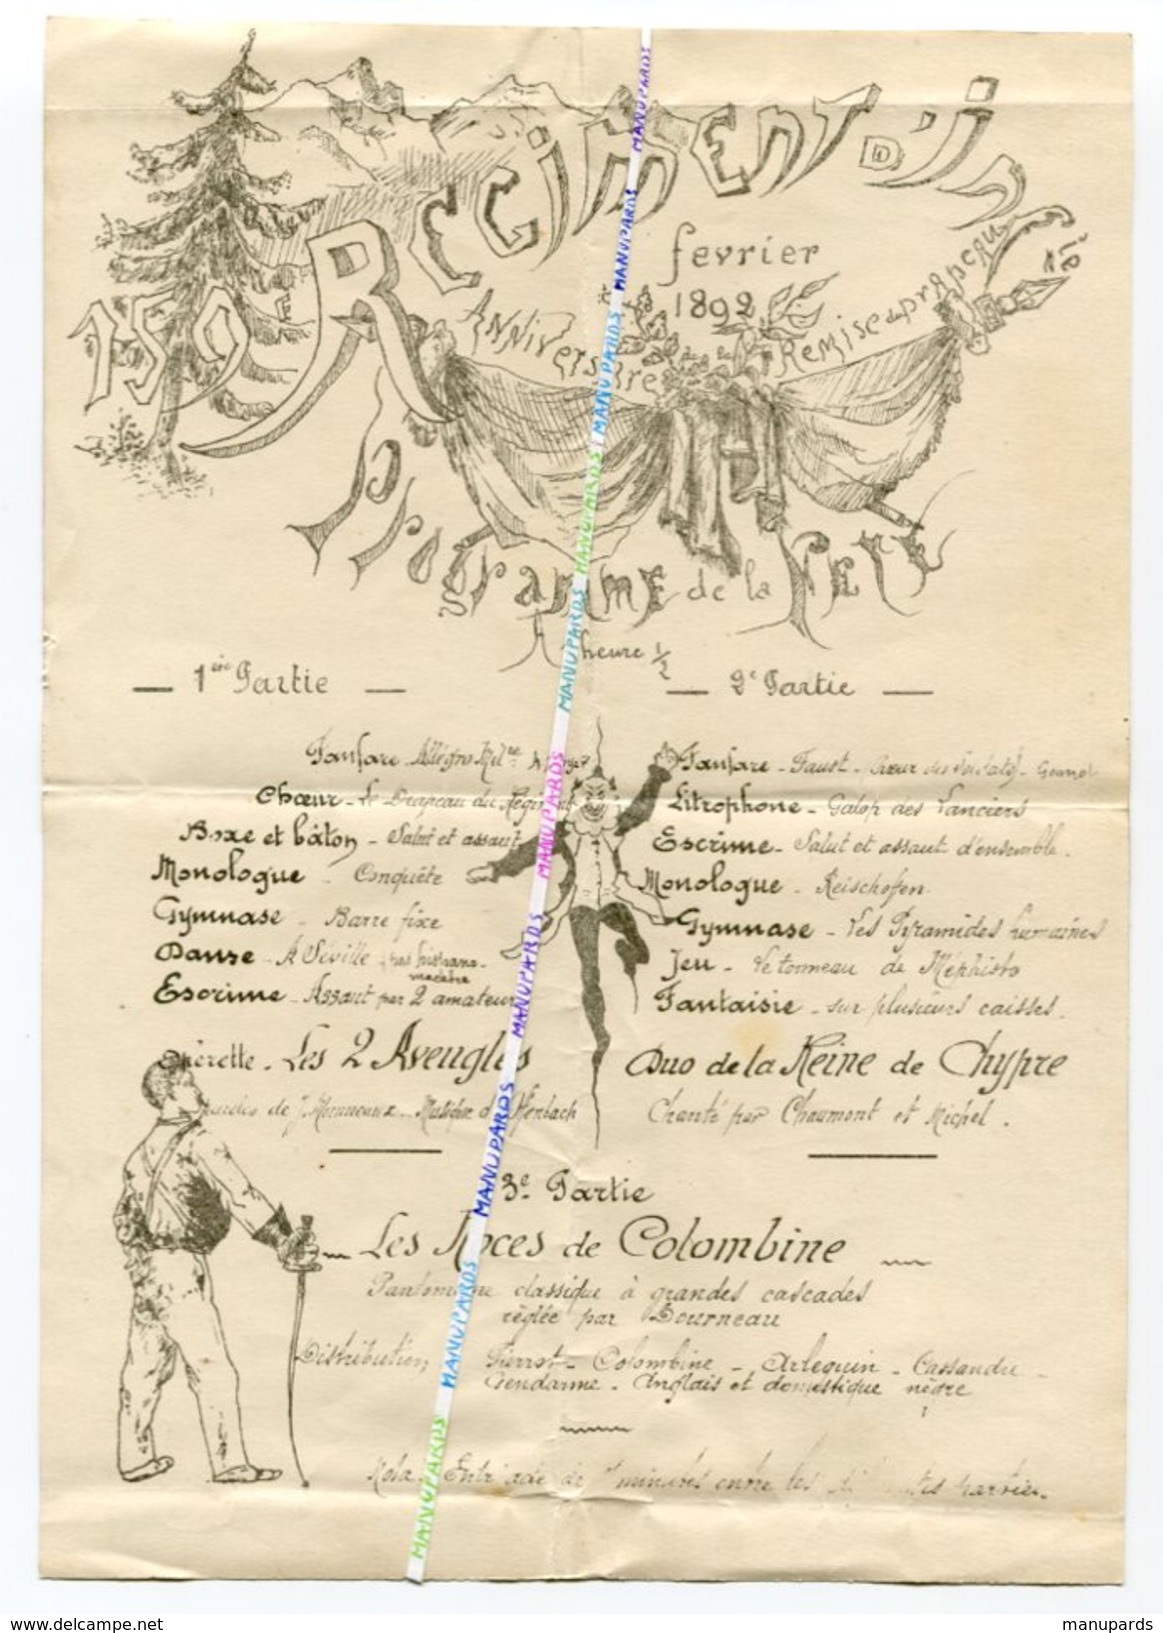 159E REGGIMENT D'Inf<sup>rie</sup>
fevrier
1892
Anniversaire
Remise du Drapeau
Programme de la Fête
A heure 1/2
— 1ère Partie —
Fanfare - Allégro
Chœur - Le Drapeau du Régiment
Boxe et bâton - Salut et assaut
Monologue - Conquête
Gymnase - Barre fixe
Danse - A Séville
macabre
Escrime - Assaut par 2 amateurs
Opérette - Les 2 Aveugles
paroles de J. Moineaux - Musique d'Offenbach
— 2e Partie —
Fanfare - Faust - Chœur des Soldats - Gounod
Litrophone - Galop des Lanciers
Escrime - Salut et assaut d'ensemble.
Monologue - Reischofen
Gymnase - Les Pyramides humaines
Jeu - Le tonneau de Méphisto
Fantaisie - sur plusieurs caisses.
Duo de la Reine de Chypre
Chanté par Chaumont et Michel.
3e Partie
Les Noces de Colombine
Pantomime classique à grandes cascades
réglée par Bourneau
Distribution Pierrot - Colombine - Arlequin - Cassandre -
Gendarme - Anglais et domestique nègre
Nota Entr'acte de minutes entre les parties.
MANUPARDS MANUPARDS MANUPARDS MANUPARDS MANUPARDS MANUPARDS MANUPARDS MANUPARDS MANUPARDS MANUPARDS MANUPARDS
www.delcampe.net
manupards